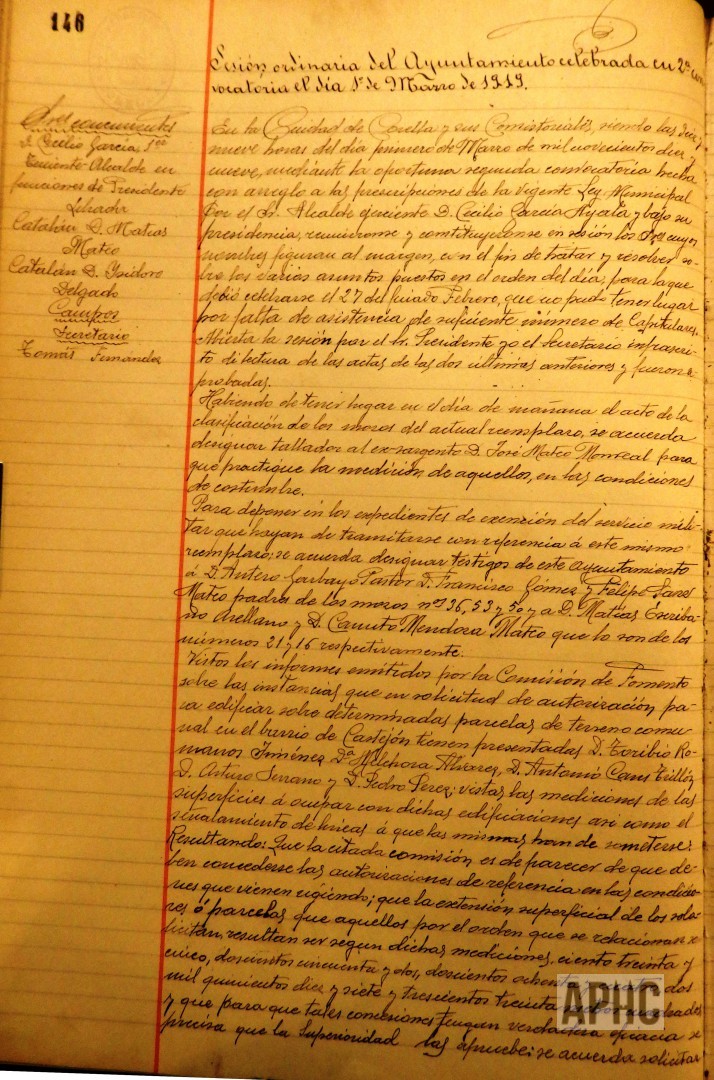 146
Sesión ordinaria del Ayuntamiento celebrada en 2ª con
vocatoria el día 1º de Marzo de 1919.
Sres concurrentes
D. Cecilio García, 1er
Teniente-Alcalde en
funciones de Presidente
Catalán D. Matías
Mateo
Catalán D. Isidoro
Delgado
Campos
Secretario
Tomás Fernández
En la Ciudad de Corella y sus Consistoriales, siendo las diez y
nueve horas del día primero de Marzo de mil novecientos diez y
nueve, mediante la oportuna segunda convocatoria hecha
con arreglo a las prescripciones de la vigente Ley Municipal
por el Sr. Alcalde ejerciente D. Cecilio García Ayala y bajo su
presidencia, reuniéronse y constituyéronse en sesión los Sres cuyos
nombres figuran al margen, con el fin de tratar y resolver so-
bre los varios asuntos puestos en el orden del día, para la que
debió celebrarse el 27 del finado Febrero, que no pudo tener lugar
por falta de asistencia de suficiente número de Capitulares.
Abierta la sesión por el Sr. Presidente yo el Secretario infrascri-
to dí lectura de las actas de las dos últimas anteriores y fueron a-
probadas.
Habiendo de tener lugar en el día de mañana el acto de la
clasificación de los mozos del actual reemplazo, se acuerda
designar tallador al ex-sargento D. José Mateo Monreal para
que practique la medición de aquellos, en las condiciones
de costumbre.
Para deponer en los expedientes de exención del servicio mili-
tar que hayan de tramitarse con referencia á este mismo
reemplazo; se acuerda designar testigos de este Ayuntamiento
á D. Antero Garbayo Pastor D. Francisco Gómez y Felipe Sanz
Mateo padres de los mozos nos 36, 53 y 50 y a D. Matías Escriba-
no Arellano y D. Canuto Mendoza Mateo que lo son de los
números 21 y 16 respectivamente.
Vistos los informes emitidos por la Comisión de Fomento
sobre las instancias que en solicitud de autorización pa-
ra edificar sobre determinadas parcelas de terreno comu-
nal en el barrio de Castejón tienen presentadas D. Toribio Ro-
manos Jiménez Dª Melchora Alvarez, D. Antonio Caus Trilloz
D. Arturo Serrano y D. Pedro Perez; vistas las mediciones de las
superficies á ocupar con dichas edificaciones asi como el
señalamiento de líneas á que las mismas han de someterse:
Resultando: Que la citada comisión es de parecer de que de-
ben concederse las autorizaciones de referencia en las condicio-
nes que vienen rigiendo; que la extensión superficial de los sola-
res ó parcelas que aquellos por el orden que se relacionan so-
licitan, resultan ser segun dichas mediciones, ciento treinta y
cinco, doscientos cincuenta y dos, doscientos ochenta y
mil quinientos diez y siete y trescientos treinta cuadrados
y que para que tales concesiones tengan verdadera eficacia se
precisa que la Superioridad las apruebe: se acuerda solicitar
APHC